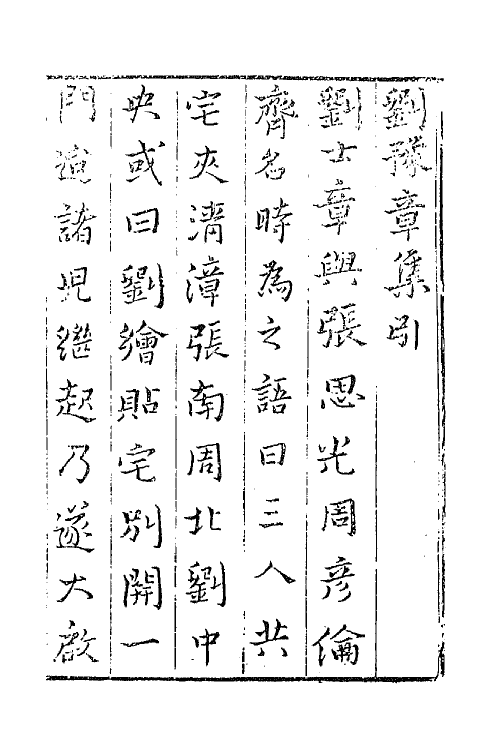 劉豫章集引
劉士章與張思光周彦倫
齊名時為之語曰三人共
宅夾清漳張南周北劉中
央或曰劉繪貼宅別開一
門迨諸児繼起乃遂大啟